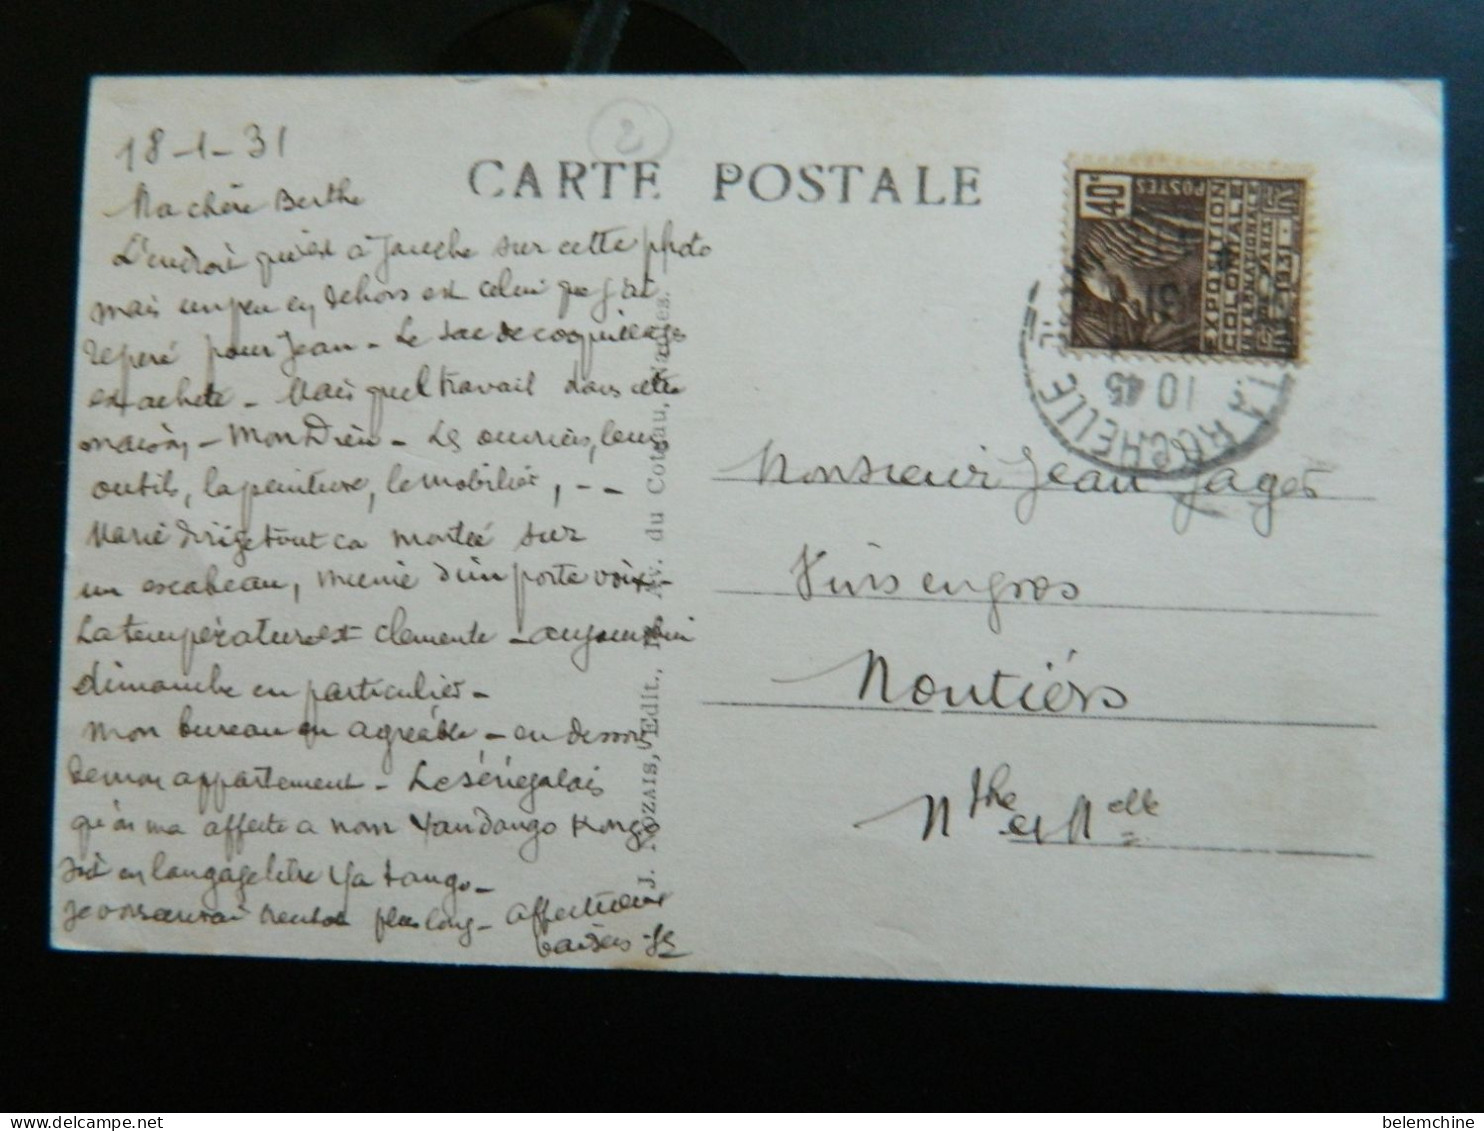 18-1-31
2
CARTE POSTALE
Ma chère Berthe
L'endroit qui est à gauche sur cette photo
mais un peu en dehors est celui que j'ai
repéré pour Jean - Le sac de coquillages
est acheté - Mais quel travail dans cette
maison - Mon Dieu - Les ouvriers, leurs
outils, la peinture, le mobilier, - -
Marie dirige tout ça montée sur
un escabeau, munie d'un porte voix -
La température est clemente - aujourd'hui
dimanche en particulier -
Mon bureau est agréable - en dessous
de mon appartement - Le sénégalais
qu'on m'a affecté a nom Yandango Kongo
dit en langage Yatango -
Je vous plus long - affectueux
baisers
J. NOZAIS, Edit., Av. du Coteau, Nantes.
40c
POSTES
EXPOSITION
COLONIALE
INTERNATIONALE
PARIS
LA ROCHELLE
10 45
31
Monsieur Jean
Vins en gros
Moutiers
Mthe et Melle
belemchine